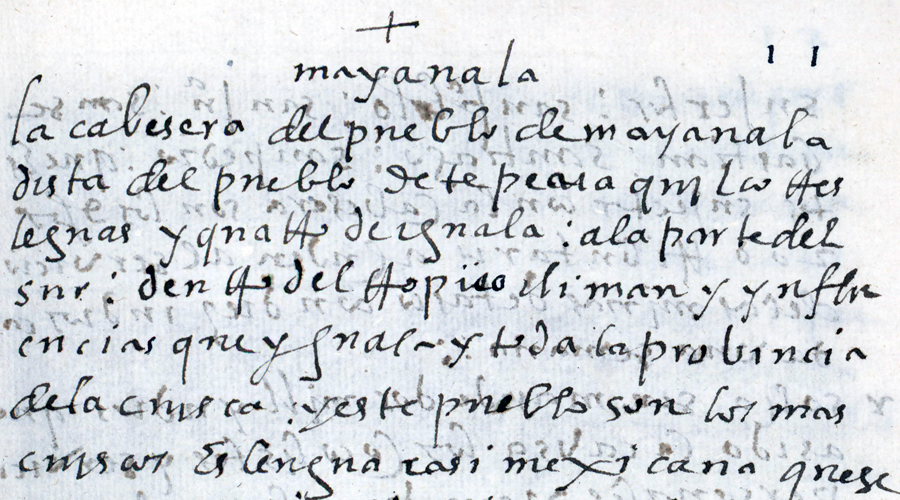 +
mayanala
la cabesera del pueblo de mayanala
dista del pueblo de tepeaca quilco ttes
leguas y quattº de iguala : a la parte del
sur : denttº del ttopico climan y ynflu
encias que yguala y toda la provincia
de la cuisca . y este pueblo son los mas
cuiscos Es lengua casi mexicana quese